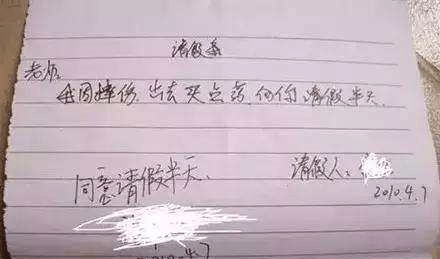 请假条
老师
我因摔伤,出去买点药,向你请假半天.
请假人:
2010.4.7
同意请假半天.
4.7